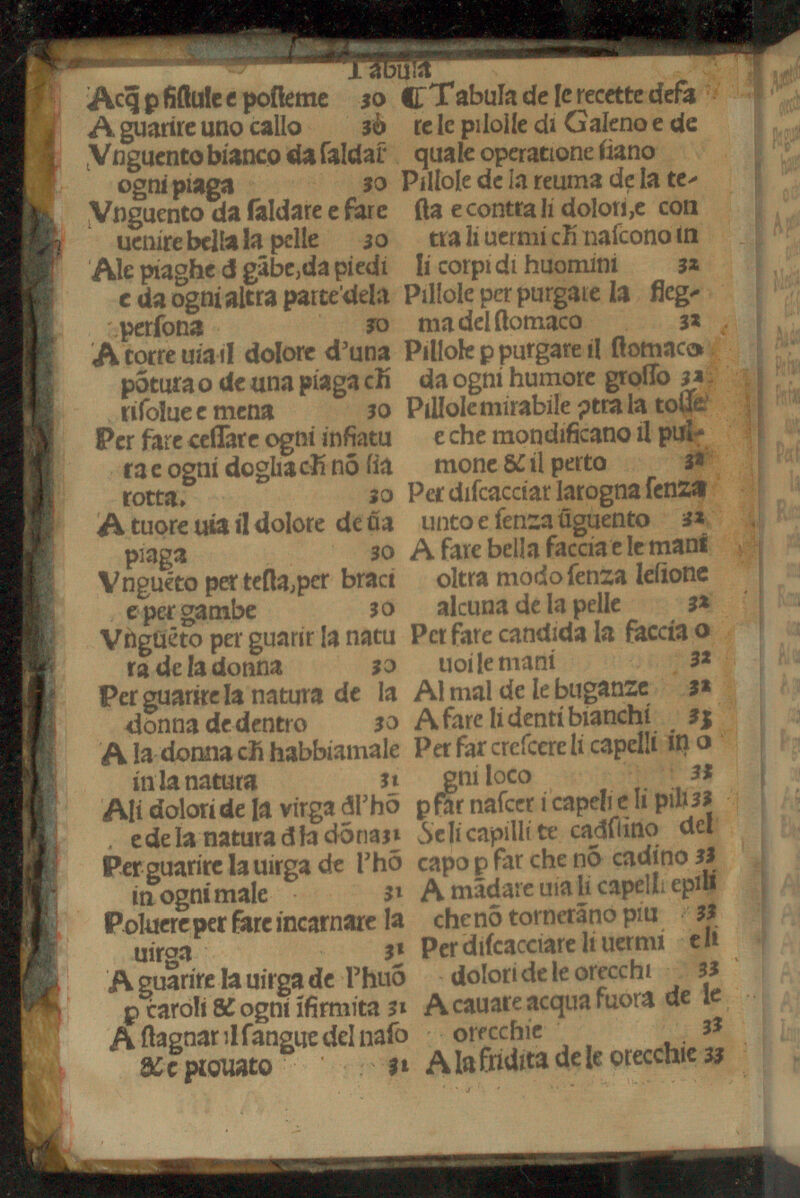 Tabula
Acq̃ p fiſtule e poſteme 30
A guarire uno callo 30
Vnguento bianco da ſaldar
ogni piaga 30
Vnguento da ſaldare e fare
uenire bella la pelle 30
Ale piaghe d gãbe, da piedi
e da ogni altra parte dela
perſona 30
A torre uia il dolore d'una
põtura o de una piaga ch̃
riſolue e mena 30
Per fare ceſſare ogni infiatu
ra e ogni doglia ch̃ nõ ſia
rotta. 30
A tuore uia il dolore dela
piaga 30
Vnguẽto per teſta, per braci
e per gambe 30
Vngũẽto per guarir la natu
ra de la donna 30
Per guarire la natura de la
donna de dentro 30
A la donna ch̃ habbia male
in la natura 31
Ali dolori de la virga dl'hõ
e de la natura dla dõna 31
Per guarire la uirga de l'hõ
in ogni male 31
Poluere per fare incarnare la
uirga 31
A guarire la uirga de l'huõ
p caroli & ogni ĩfirmita 31
A ſtagnar il ſangue del naſo
& e prouato 31
¶ Tabula de le recette defa
re le pilolle di Galeno e de
quale operatione ſiano
Pillole de la reuma de la te-
ſta e contra li dolori, e con
tra li uermi ch̃ naſcono in
li corpi di huomini 32
Pillole per purgare la fleg-
ma del ſtomaco 32
Pillole p purgare il ſtomaco
da ogni humore groſſo 32
Pillole mirabile ɔtra la toſſe
e che mondificano il pul-
mone & il petto 32
Per diſcacciar la rogna ſenza
unto e ſenza ũguento 32
A fare bella faccia e le mani
oltra modo ſenza leſione
alcuna de la pelle 32
Per fare candida la faccia o
uoi le mani 32
Al mal de le buganze 32
A fare li denti bianchi 33
Per far creſcere li capelli in o
gni loco 33
p far naſcer i capeli e li pili 33
Se li capilli te cadſſino del
capo p far che nõ cadino 33
A mãdare uia li capelli e pili
che nõ tornerãno piu 33
Per diſcacciare li uermi e li
dolori de le orecchi 33
A cauare acqua fuora de le
orecchie 33
A la fridita de le orecchie 33